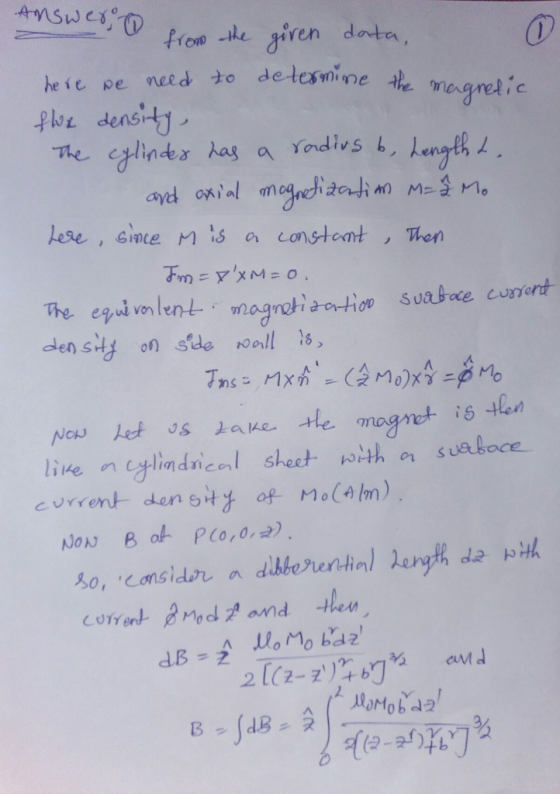 Answer:- ①
①
from the given data,
here we need to determine the magnetic
flux density,
The cylinder has a radius b, Length L,
and axial magnetization M = ẑ M₀
here, since M is a constant, Then
Jm = ∇'×M = 0.
The equivalent magnetization surface current
density on side wall is,
Jms = M×n̂' = (ẑ M₀)×r̂ = φ̂ M₀
Now Let us take the magnet is then
like a cylindrical sheet with a surface
current density of M₀(A/m).
NOW B at P(0,0,z).
So, consider a differential Length dz with
current φ̂ M₀dz' and then,
dB = ẑ μ₀M₀b²dz' / 2[(z-z')²+b²]^3/2 and
B = ∫dB = ẑ ∫₀^L μ₀M₀b²dz' / 2[(z-z')²+b²]^3/2